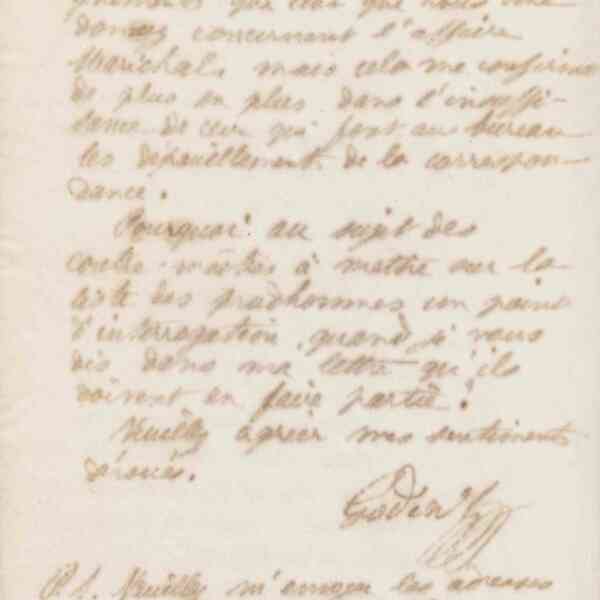 que ceux que vous me
donnez concernant l'affaire
Maréchal, mais cela me confirme
de plus en plus dans l'insuffi-
sance de ceux qui font au bureau
les dépouillements de la correspon-
dance.
Pourquoi au sujet des
contre-maîtres à mettre sur la
liste des prudhommes un point
d'interrogation, quand je vous
dis dans ma lettre qu'ils
doivent en faire partie ?
Veuillez agréer mes sentiments
dévoués.
Godin
P.S. Veuillez m'envoyer les adresses